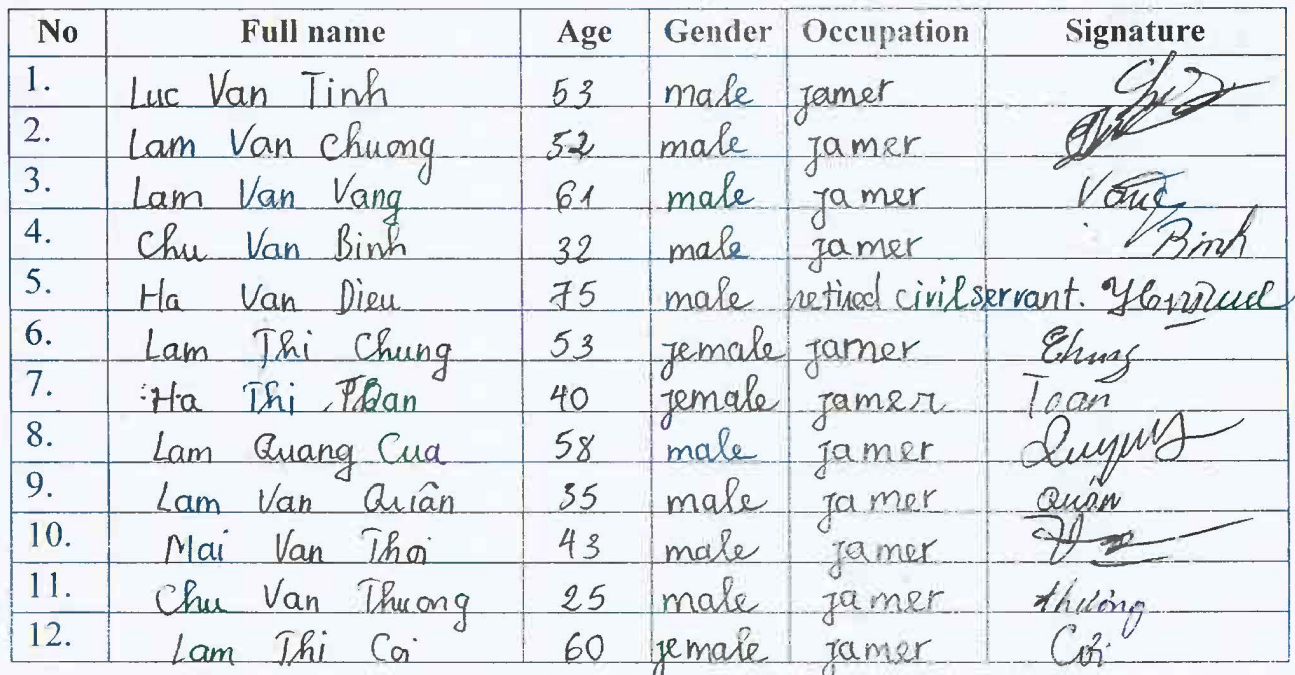 No Full name Age Gender Occupation Signature
1. Luc Van Tinh 53 male jamer
2. Lam Van Chuong 52 male jamer
3. Lam Van Vang 61 male jamer
4. Chu Van Binh 32 male jamer Binh
5. Ha Van Dieu 75 male retired civil servant.
6. Lam Thi Chung 53 jemale jamer Chung
7. Ha Thi Toan 40 jemale jamer Toan
8. Lam Quang Cua 58 male jamer
9. Lam Van Quân 35 male jamer Quân
10. Mai Van Thoi 43 male jamer
11. Chu Van Thuong 25 male jamer thương
12. Lam Thi Coi 60 jemale jamer Cơi